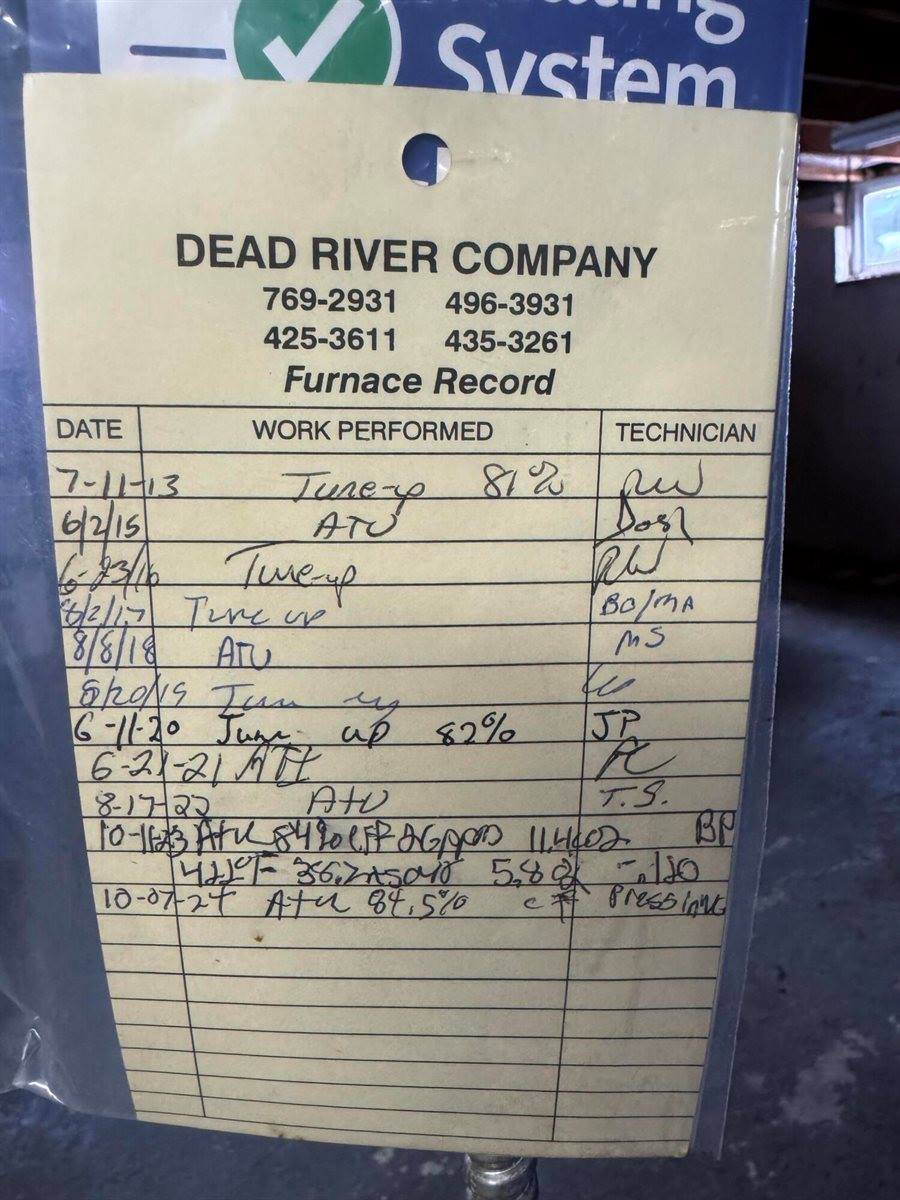 System
DEAD RIVER COMPANY
769-2931 496-3931
425-3611 435-3261
Furnace Record
DATE WORK PERFORMED TECHNICIAN
7-11-13 Tune-up 81% RW
6/2/15 ATU
6-23/16 Tune-up RW
8/2/17 Tune up BO/MA
8/8/18 ATU MS
8/20/19 Tune up
6-11-20 Tune up 82% JP
6-21-21 ATU
8-17-22 ATU T.S.
10-11-23 Atu 84% 11.4 CO2 BP
422°F 5.8 -.120
10-07-24 Atu 84.5%